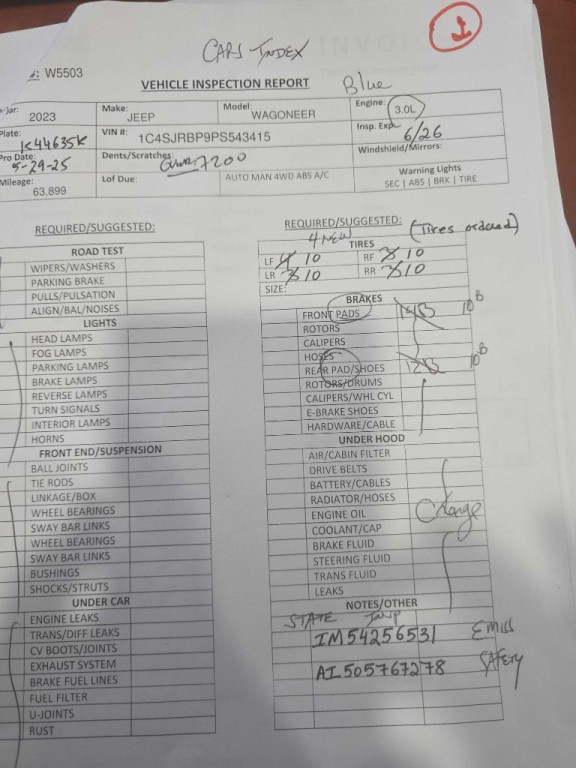 1
CARS INDEX
#: W5503
VEHICLE INSPECTION REPORT
Blue
2023
Make: JEEP
Model: WAGONEER
Engine: 3.0L
Plate: K44635K
VIN #: 1C4SJRBP9PS543415
Insp. Exp. 6/26
Pro Date: 5-29-25
Dents/Scratches
7200
Windshield/Mirrors:
Mileage: 63,899
Lof Due:
AUTO MAN 4WD ABS A/C
Warning Lights
SEC | ABS | BRK | TIRE
REQUIRED/SUGGESTED:
ROAD TEST
WIPERS/WASHERS
PARKING BRAKE
PULLS/PULSATION
ALIGN/BAL/NOISES
LIGHTS
HEAD LAMPS
FOG LAMPS
PARKING LAMPS
BRAKE LAMPS
REVERSE LAMPS
TURN SIGNALS
INTERIOR LAMPS
HORNS
FRONT END/SUSPENSION
BALL JOINTS
TIE RODS
LINKAGE/BOX
WHEEL BEARINGS
SWAY BAR LINKS
WHEEL BEARINGS
SWAY BAR LINKS
BUSHINGS
SHOCKS/STRUTS
UNDER CAR
ENGINE LEAKS
TRANS/DIFF LEAKS
CV BOOTS/JOINTS
EXHAUST SYSTEM
BRAKE FUEL LINES
FUEL FILTER
U-JOINTS
RUST
REQUIRED/SUGGESTED:
4 NEW (Tires ordered)
TIRES
LF 10 RF 10
LR 10 RR 10
SIZE:
BRAKES
FRONT PADS 10 B
ROTORS
CALIPERS
HOSES
REAR PAD/SHOES 10 B
ROTORS/DRUMS
CALIPERS/WHL CYL
E-BRAKE SHOES
HARDWARE/CABLE
UNDER HOOD
AIR/CABIN FILTER
DRIVE BELTS
BATTERY/CABLES
RADIATOR/HOSES
ENGINE OIL Change
COOLANT/CAP
BRAKE FLUID
STEERING FLUID
TRANS FLUID
LEAKS
NOTES/OTHER
STATE Insp
IM54256531 Emiss
AI505767278 SAFETY